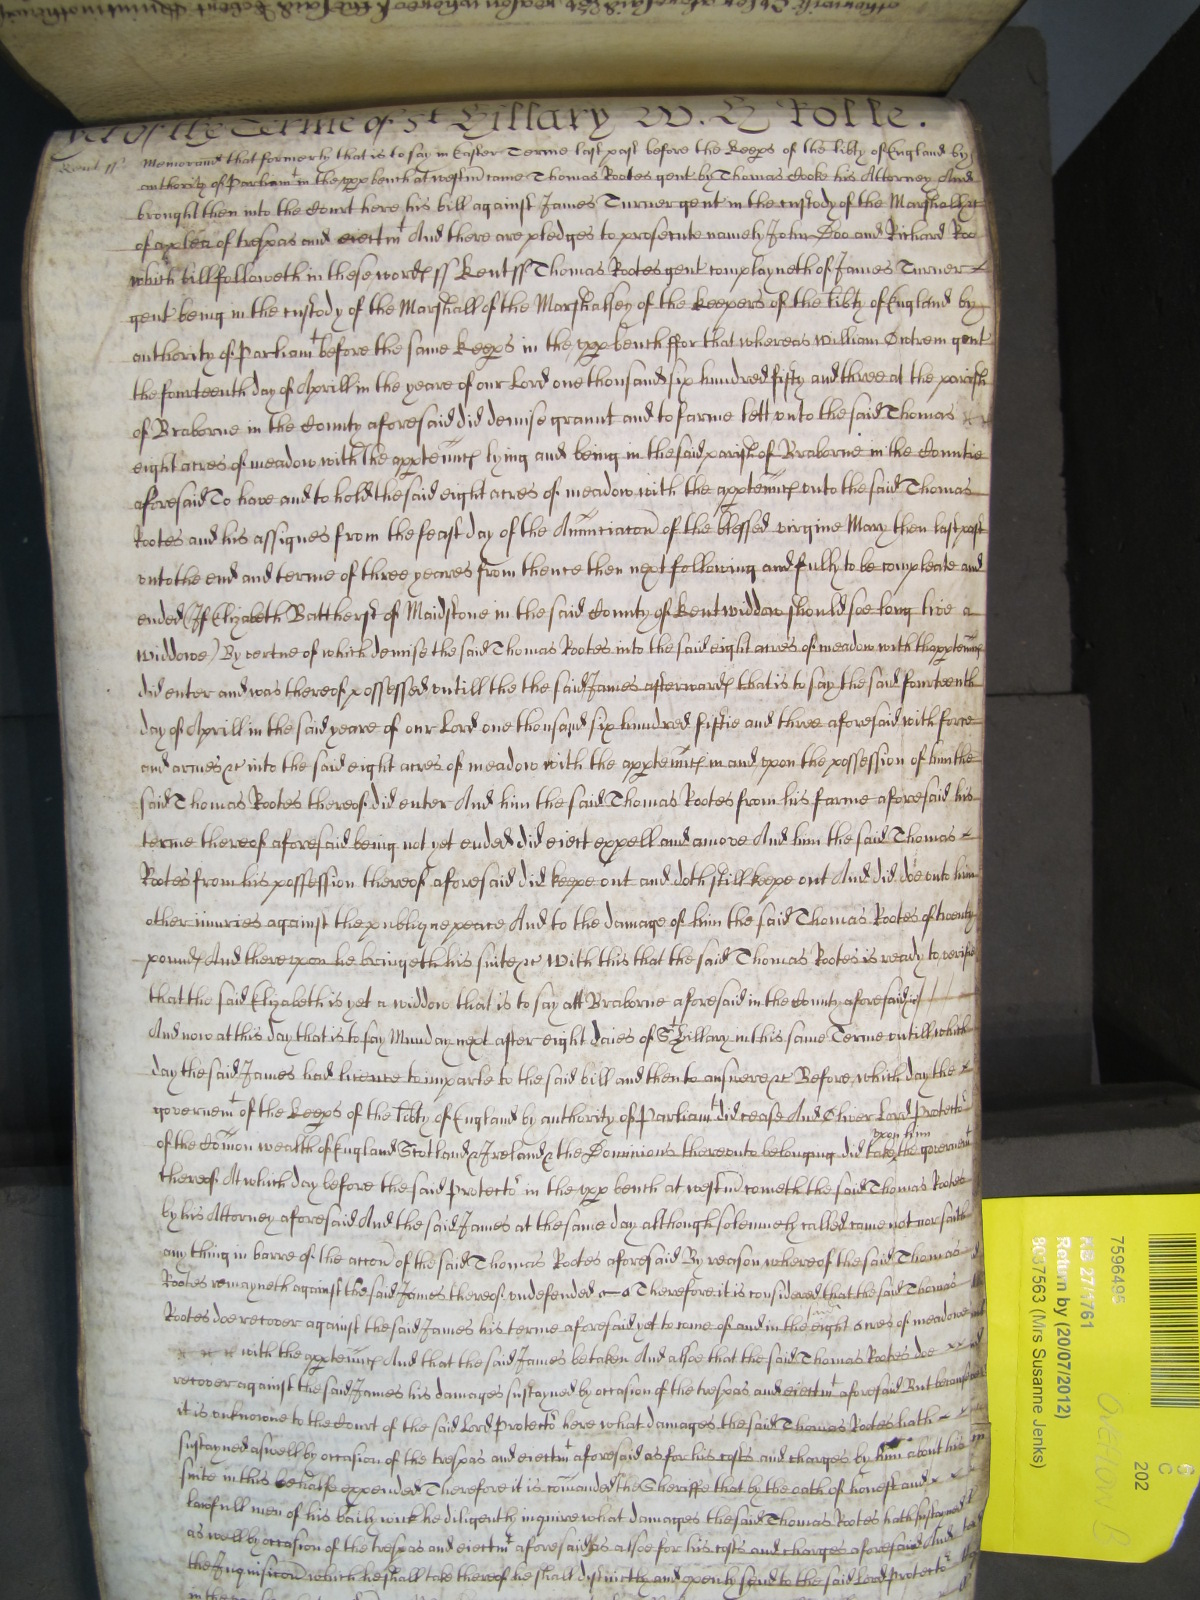 Yet of the Terme of St Hillary W. H Rolle.
Kent ss Memorand that formerly that is to say in Easter Terme last past before the Keeps of the libty of England by
authority of Parliamt in the upp bench at westm came Thomas Rootes gent by Thomas Cooke his Attorney And
brought then into the Court here his bill against James Turner gent in the custody of the Marshall &c
of a plea of trespas and eiectmt And there are pledges to prosecute namely John Doo and Richard Roo
which bill followeth in these words ss Kent ss Thomas Rootes gent complayneth of James Turner
gent being in the custody of the Marshall of the Marshalsey of the keepers of the libty of England by
authority of Parliamt before the same Keeps in the upp bench ffor that whereas William Owtrem gent
the fourteenth day of Aprill in the yeare of our Lord one thousand six hundred fifty and three at the parish
of Braborne in the County aforesaid did demise graunt and to farme lett unto the said Thomas
eight acres of meadow with the apptennces lying and being in the said parish of Braborne in the Countie
aforesaid To have and to hold the said eight acres of meadow with the apptennces unto the said Thomas
Rootes and his assignes from the feast day of the Annunciacon of the blessed virgine Mary then last past
unto the end and terme of three yeares from thence then next following and fully to be compleate and
ended (If Elizabeth Battherst of Maidstone in the said County of Kent widdow should soe long live a
widdowe) By vertue of which demise the said Thomas Rootes into the said eight acres of meadow with thapptennces
did enter and was thereof possessed untill the the said James afterwards that is to say the said fourteenth
day of Aprill in the said yeare of our Lord one thousand six hundred fiftie and three aforesaid with force
and armes &c into the said eight acres of meadow with the apptennces in and upon the possession of him the
said Thomas Rootes thereof did enter And him the said Thomas Rootes from his farme aforesaid his
terme thereof aforesaid being not yet ended did eiect expell and amove And him the said Thomas
Rootes from his possession thereof aforesaid did keepe out and doth still kepe out And did doe unto him
other iniuries against the publique peace And to the damage of him the said Thomas Rootes of twenty
pounds And thereupon he bringeth his suite &c With this that the said Thomas Rootes is ready to verifie
that the said Elizabeth is yet a widdow that is to say att Braborne aforesaid in the County aforesaid &c
And now at this day that is to say Munday next after eight daies of St Hillary in this same Terme untill which
day the said James had licence to imparle to the said bill and then to answere &c Before which day the
governemt of the Keeps of the libty of England by authority of Parliamt did cease And Oliver Lord Protector
of the Comon wealth of England Scotland & Ireland & the Dominions thereunto belonging did take upon him the governemt
thereof At which day before the said Protector in the upp bench at westm cometh the said Thomas Rootes
by his Attorney aforesaid And the said James at the same day although solemnely called came not nor saith
any thing in barre of the accon of the said Thomas Rootes aforesaid By reason whereof the said Thomas
Rootes remayneth against the said James thereof undefended Therefore it is considered that the said Thomas
Rootes doe recover against the said James his terme aforesaid yet to come of and in the said eight acres of meadowe
with the apptennces And that the said James be taken And alsoe that the said Thomas Rootes doe
recover against the said James his damages sustayned by occasion of the trespas and eiectmt aforesaid But because
it is unknowne to the Court of the said Lord Protector here what damages the said Thomas Rootes hath
sustayned aswell by occasion of the trespas and eiectmt aforesaid as for his costs and charges by him about his
suite in this behalfe expended Therefore it is comanded the Sheriffe that by the oath of honest and
lawfull men of his baily wick he diligently inquire what damages the said Thomas Rootes hath sustayned
as well by occasion of the trespas and eiectmt aforesaid as alsoe for his costs and charges aforesaid And
the Inquisicon which he shall take thereof he shall distinctly and openly send to the said Lord Protector
7596495
KB 27/1761
Return by (20/07/2012)
8037563 (Mrs Susanne Jenks)
S
C
202